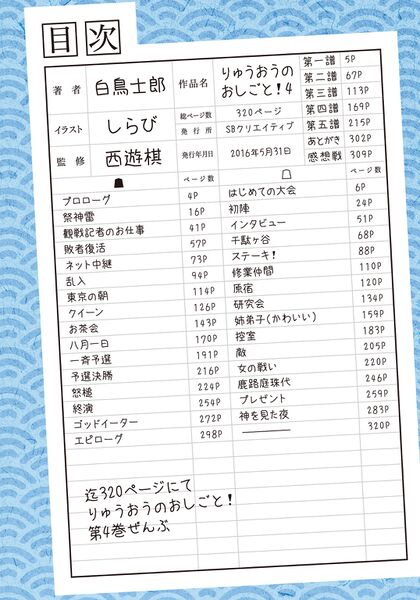 目次
著者 白鳥士郎 作品名 りゅうおうのおしごと!4
イラスト しらび 総ページ数 320ページ
発行所 SBクリエイティブ
監修 西遊棋 発行年月日 2016年5月31日
第一譜 5P
第二譜 67P
第三譜 113P
第四譜 169P
第五譜 215P
あとがき 302P
感想戦 309P
ページ数 ページ数
プロローグ 4P はじめての大会 6P
祭神雷 16P 初陣 24P
観戦記者のお仕事 41P インタビュー 51P
敗者復活 57P 千駄ヶ谷 68P
ネット中継 73P ステーキ! 88P
乱入 94P 修業仲間 110P
東京の朝 114P 原宿 120P
クイーン 126P 研究会 134P
お茶会 143P 姉弟子(かわいい) 159P
八月一日 170P 控室 183P
一斉予選 191P 敵 205P
予選決勝 216P 女の戦い 220P
怒槌 224P 鹿路庭珠代 246P
終演 254P プレゼント 259P
ゴッドイーター 272P 神を見た夜 283P
エピローグ 298P ――― 320P
迄320ページにて
りゅうおうのおしごと!
第4巻ぜんぶ